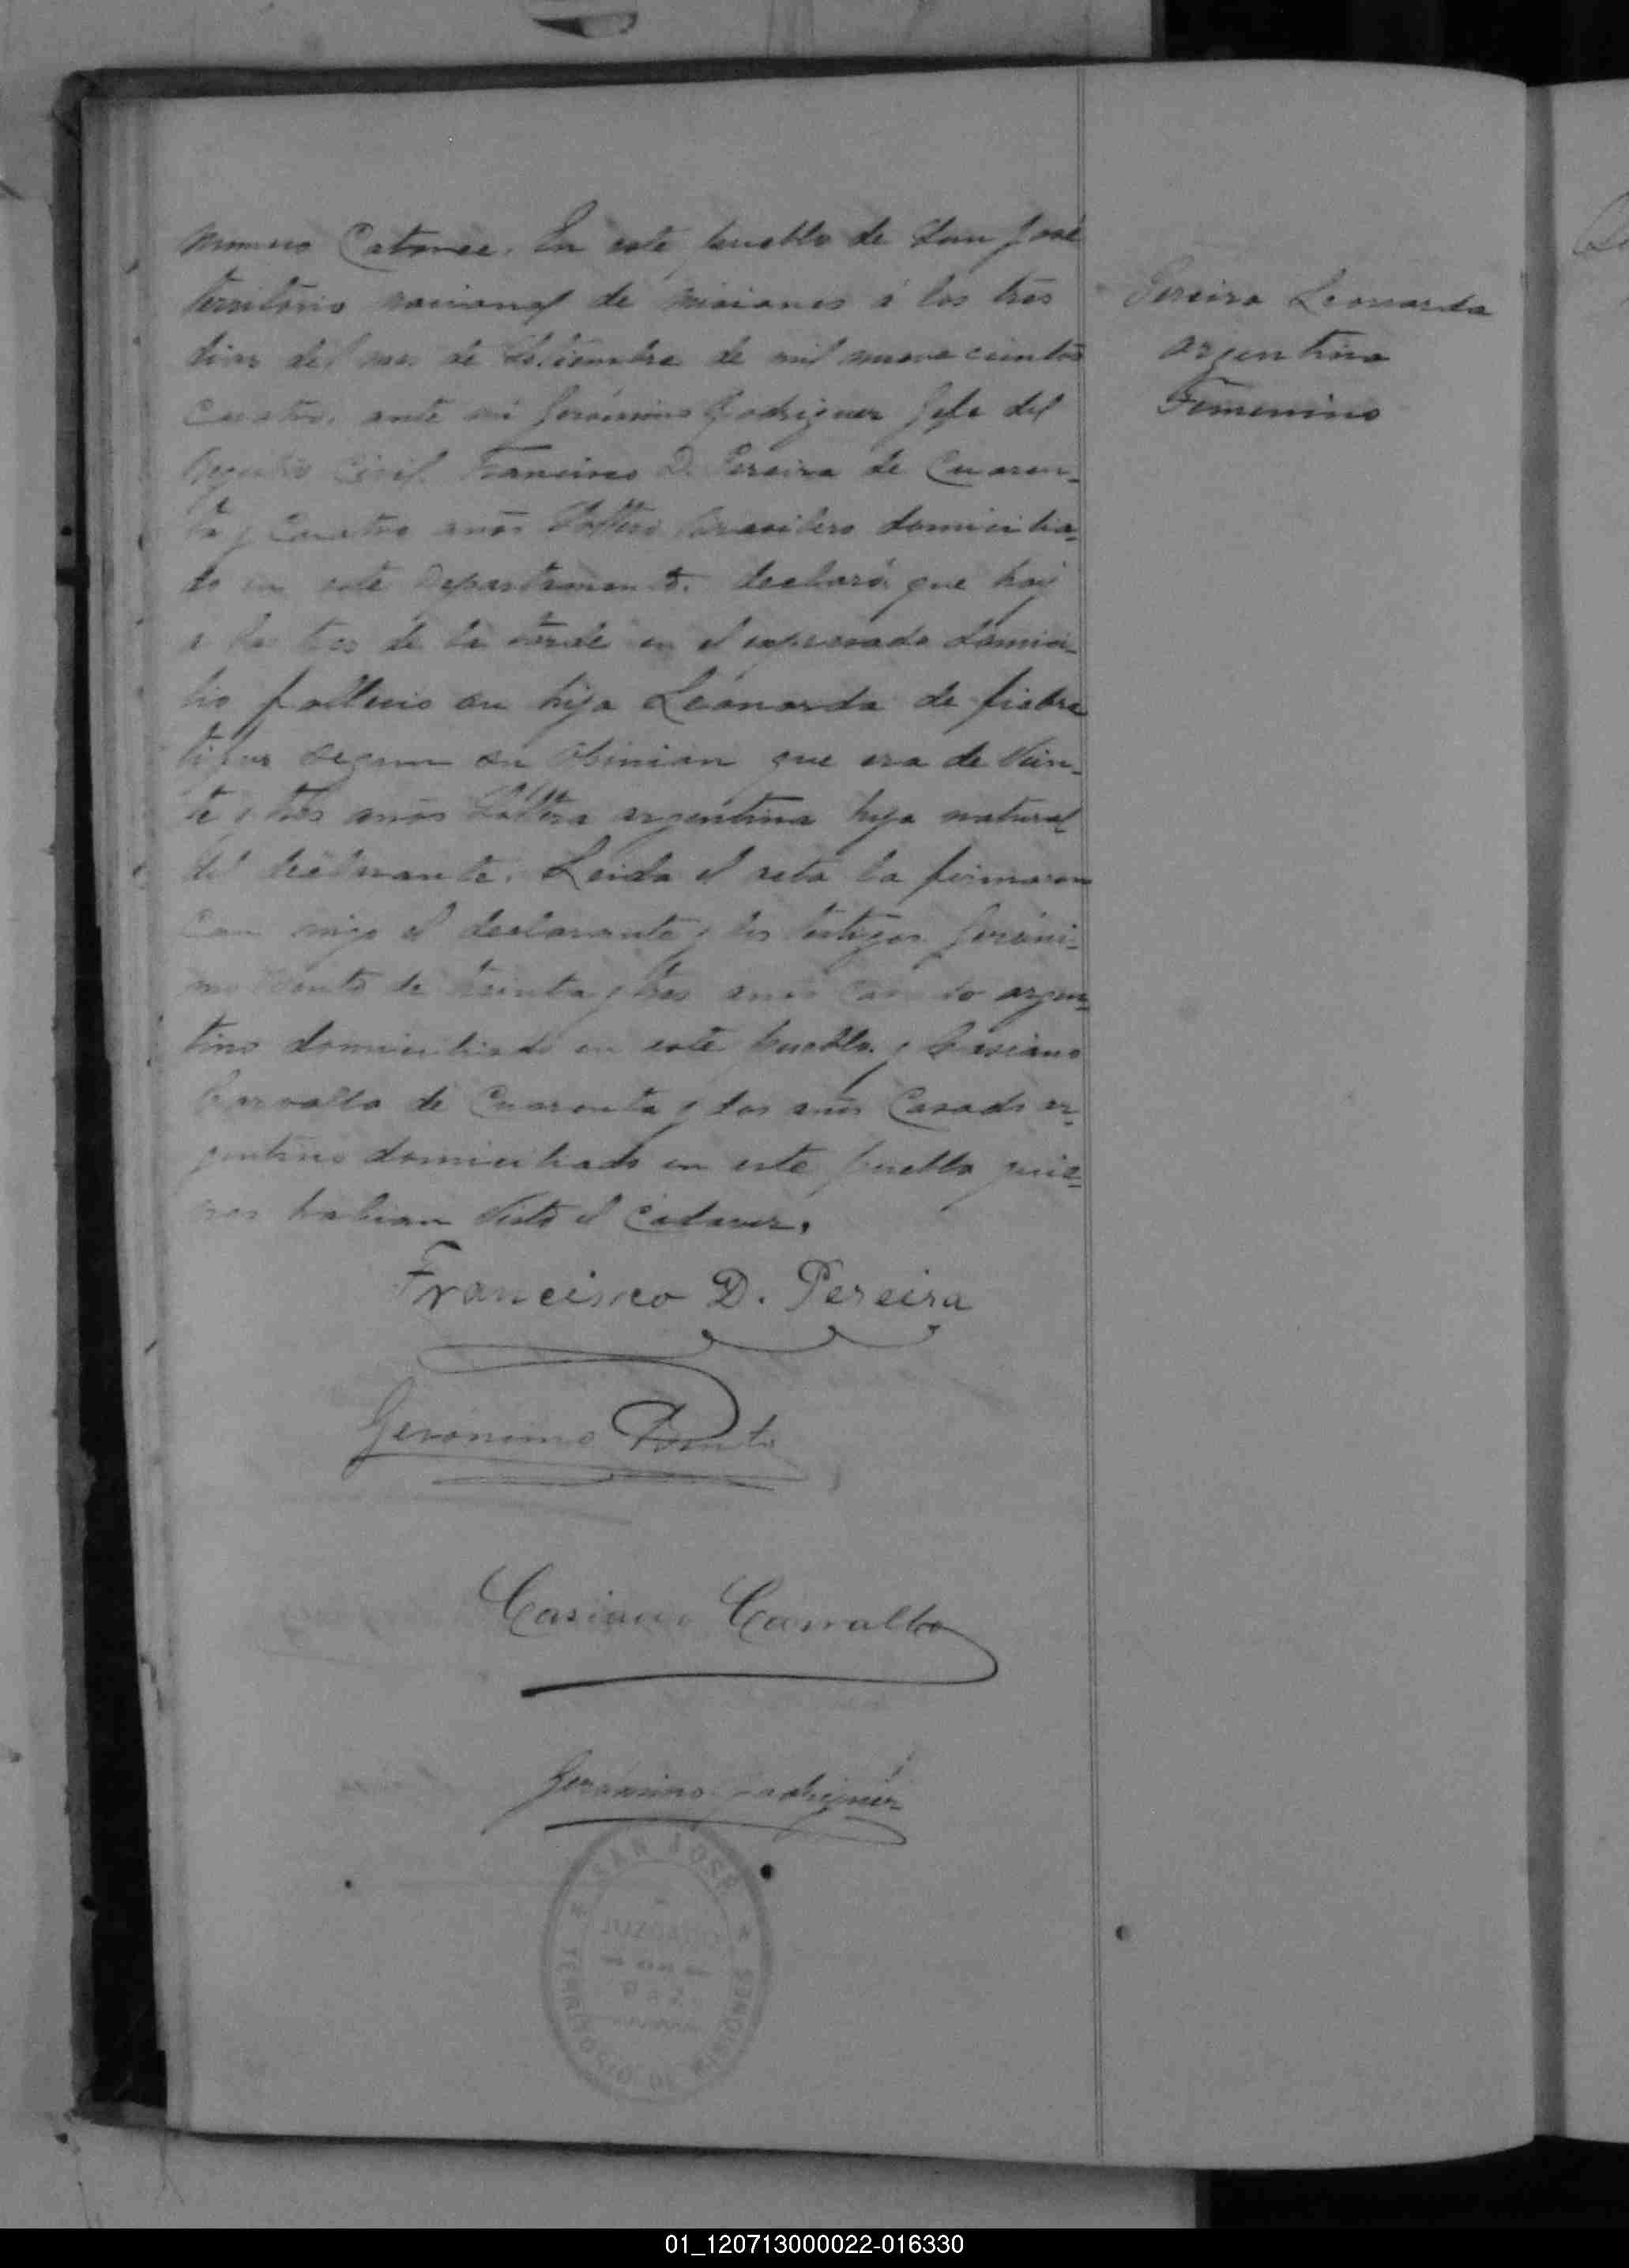 Numero Catorce. En este pueblo de San José
territorio nacional de Misiones á los tres
dias del mes de de mil nueve cientos
cuatro, ante mi Gerónimo Rodriguez Jefe del
Registro Civil. Francisco D. Pereira de Cuaren-
ta y Cuatro años Soltero brasilero domicilia-
do en este Departamento. declaró que hoy
a las tres de la tarde en el expresado domici-
lio fallecio su hija Leonarda de fiebre
tifus segun su opinion que era de Vein-
te y tres años Soltera argentina hija natural
del declarante. Leida el acta la firmaron
con migo el declarante y los testigos Geróni-
mo de treinta y tres años Casado argen-
tino domiciliado en este pueblo y Casiano
Carvallo de Cuarenta y dos años Casado ar-
gentino domiciliado en este pueblo quie-
nes habian visto el Cadaver.
Pereira Leonarda
argentina
Femenino
Francisco D. Pereira
Geronimo
Casiano Carvallo
Gerónimo Rodriguez
SAN JOSÉ
JUZGADO
DE
PAZ
TERRITORIO DE MISIONES
01_120713000022-016330